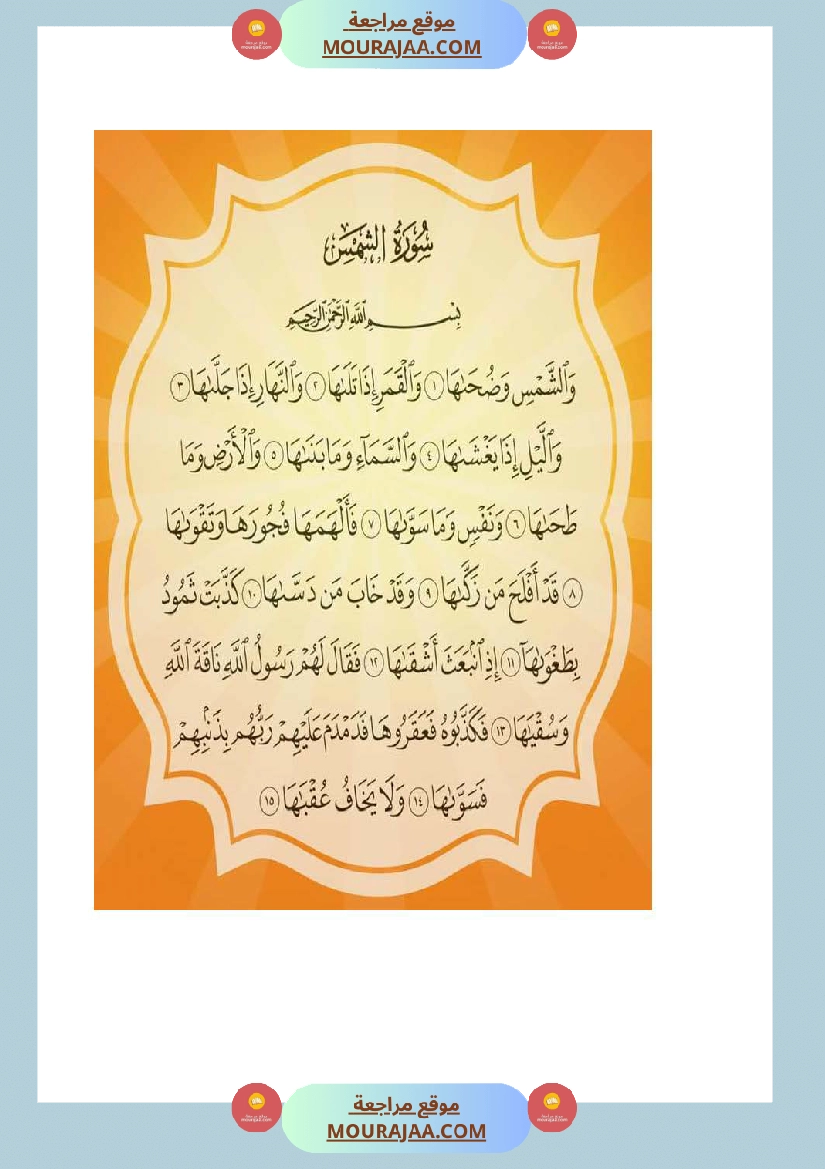 موقع مراجعة
MOURAJAA.COM
سُورَةُ الشَّمْسِ
بِسْمِ اللَّهِ الرَّحْمَٰنِ الرَّحِيمِ
وَٱلشَّمْسِ وَضُحَىٰهَا ١ وَٱلْقَمَرِ إِذَا تَلَىٰهَا ٢ وَٱلنَّهَارِ إِذَا جَلَّىٰهَا ٣
وَٱلَّيْلِ إِذَا يَغْشَىٰهَا ٤ وَٱلسَّمَآءِ وَمَا بَنَىٰهَا ٥ وَٱلْأَرْضِ وَمَا
طَحَىٰهَا ٦ وَنَفْسٍ وَمَا سَوَّىٰهَا ٧ فَأَلْهَمَهَا فُجُورَهَا وَتَقْوَىٰهَا
٨ قَدْ أَفْلَحَ مَن زَكَّىٰهَا ٩ وَقَدْ خَابَ مَن دَسَّىٰهَا ١٠ كَذَّبَتْ ثَمُودُ
بِطَغْوَىٰهَآ ١١ إِذِ ٱنۢبَعَثَ أَشْقَىٰهَا ١٢ فَقَالَ لَهُمْ رَسُولُ ٱللَّهِ نَاقَةَ ٱللَّهِ
وَسُقْيَٰهَا ١٣ فَكَذَّبُوهُ فَعَقَرُوهَا فَدَمْدَمَ عَلَيْهِمْ رَبُّهُم بِذَنۢبِهِمْ
فَسَوَّىٰهَا ١٤ وَلَا يَخَافُ عُقْبَٰهَا ١٥
موقع مراجعة
MOURAJAA.COM